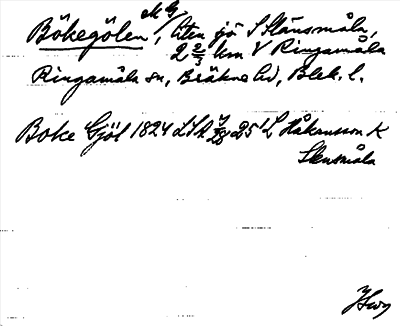 Bökegölen, M G, liten sjö S Stensmåla,
2 2/3 km V Ringamåla
Ringamåla sn, Bräkne hd, Blek. l.
Boke Gjöl 1824 LSA 25 L Håkansson K
Stensmåla